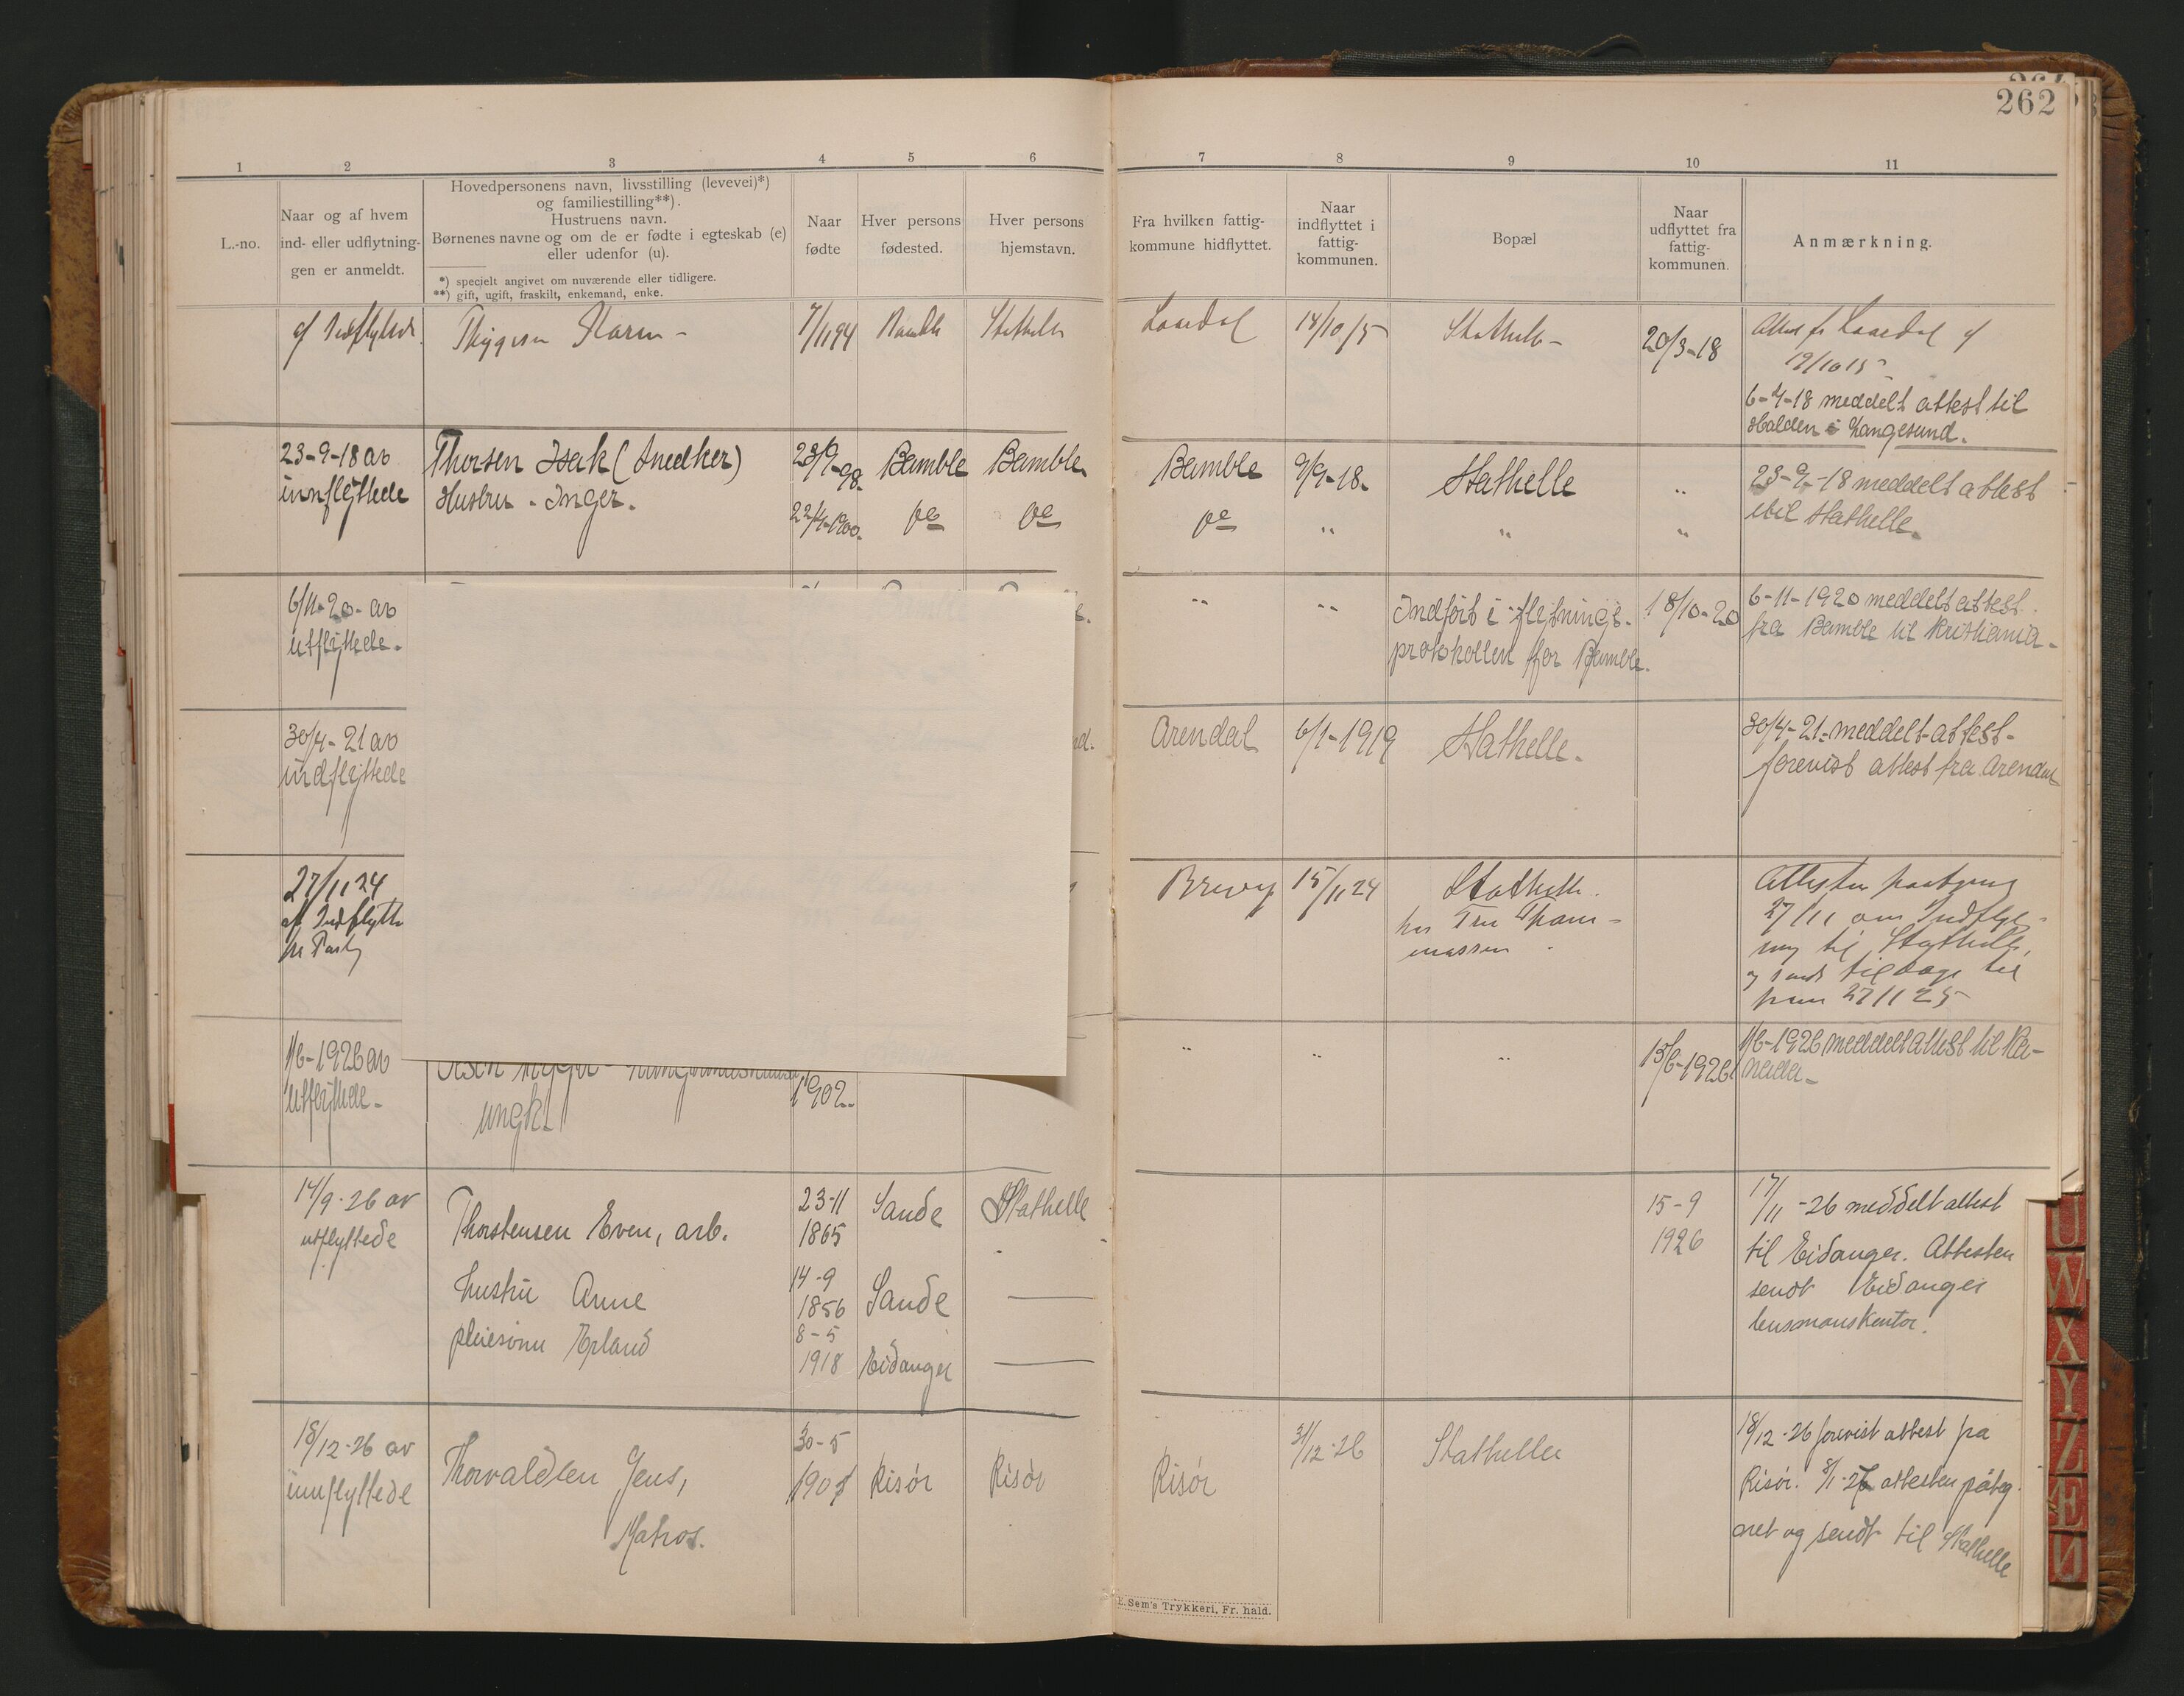 262
1 2 3 4 5 6 7 8 9 10 11
L.-no.
Naar og af hvem
ind- eller udflytnin-
gen er anmeldt.
Hovedpersonens navn, livsstilling (levevei)*)
og familiestilling**).
Hustruens navn.
Børnenes navne og om de er fødte i egteskab (e)
eller udenfor (u).
*) specielt angivet om nuværende eller tidligere.
**) gift, ugift, fraskilt, enkemand, enke.
Naar
fødte
Hver persons
fødested.
Hver persons
hjemstavn.
Fra hvilken fattig-
kommune hidflyttet.
Naar
indflyttet i
fattig-
kommunen.
Bopæl
Naar
udflyttet fra
fattig-
kommunen.
Anmærkning.
af Indflytter
Karen -
Bamble
Stathelle
Laardal
14/10 15
Stathelle -
20/3-18
Attest fr Laardal af
19/10 15
6-4-18 meddelt attest til
Halden i Langesund.
23-9-18 av
innflyttede
Thorsen Isak (Snedker)
Hustru - Inger.
23/9-98.
22/4-1900.
Bamble
do
Bamble
do
Bamble
do
9/9-18.
"
Stathelle
"
"
"
23-9-18 meddelt attest
til Stathelle.
6/11-20- av
utflyttede.
"
"
Indført i flytnings-
protokollen for Bamble.
18/10-20
6-11-1920 meddelt attest
fra Bamble til Kristiania-
30/4-21 av
indflyttede
nd.
Arendal
6/1-1919
Stathelle.
30/4-21- meddelt attest-
forevist attest fra Arendal
27/11 24
af Indflytte
pr Post
Brevig
15/11 24
Stathelle.
hos Fru Thom-
massen
Attesten paategnet
27/11 om Indflyt-
ning til Stathelle,
og sendt tilbage til
ham 27/11 25
1/6-1926 av
utflyttede-
ungk.
1902.
"
"
"
15/6-1926
1/6-1926 meddelt attest til Ka-
nada-
14/9-26 av
utflyttede
Thorstensen Even, arb.
hustru Anne
pleiesønn Erland
23-11
1865
14-9
1856
8-5
1918
Sande
Sande
Eidanger
Stathelle
15-9
1926
17/11-26 meddelt attest
til Eidanger. Attesten
sendt Eidanger
lensmanskontor.
18/12-26 av
innflyttede
Thorvaldsen Jens,
Matros.
30-5
Risør
Risør
Risør
31/12-26
Stathelle
18/12-26 forevist attest fra
Risør. 8/1-27 attesten påteg-
net og sendt til Stathelle
E. Sem's Trykkeri, Fr. hald.
U
W
X
Y
Z
Æ